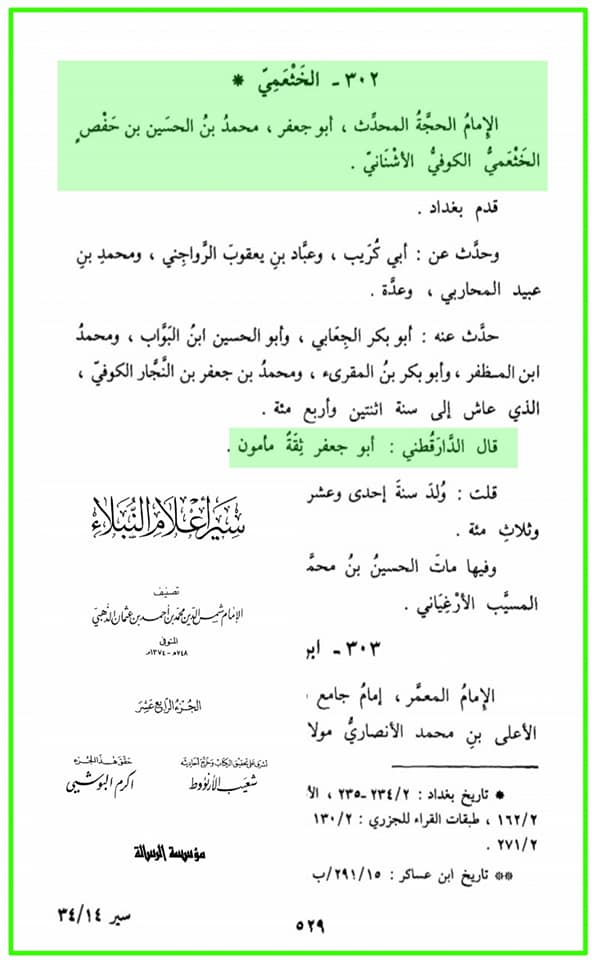 ٣٠٢ - الخَثْعَمِيّ *
الإِمامُ الحجَّةُ المحدِّث ، أبو جعفر ، محمدُ بنُ الحسَين بن حَفْصٍ
الخَثْعَميُّ الكوفيُّ الأشْنَانيّ .
قدم بغداد .
وحدَّث عن : أبي كُرَيب ، وعبَّاد بنِ يعقوبَ الرَّواجِني ، ومحمدِ بنِ
عبيد المحاربي ، وعدَّة .
حدَّث عنه : أبو بكر الجِعَابي ، وأبو الحسين ابنُ البَوَّاب ، ومحمدُ
ابن المظفر ، وأبو بكر بنُ المقرىء ، ومحمدُ بن جعفر بن النَّجار الكوفيّ ،
الذي عاش إلى سنة اثنتين وأربع مئة .
قال الدَّارَقُطني : أبو جعفر ثِقَةٌ مأمون .
قلت : وُلدَ سنةَ إحدى وعشر
وثلاثِ مئة .
وفيها ماتَ الحسينُ بنُ محمَّ
المسيَّب الأرْغِيَاني .
٣٠٣ - ابن
الإِمامُ المعمَّر ، إمامُ جامع
الأعلى بنِ محمد الأنصاريُّ مولا
* تاريخ بغداد : ٢/ ٢٣٤ - ٢٣٥ ، الأ
١٦٢/٢ ، طبقات القراء للجزري : ٢/ ١٣٠
٢٧١/٢ .
** تاريخ ابن عساكر : ١٥/ ٢٩١/ب
سِيَرُ أَعْلَامِ النُّبَلَاءِ
تصنيف
الإمام شمس الدين محمد بن أحمد بن عثمان الذهبي
المتوفى
٧٤٨هـ - ١٣٧٤م
الجزء الرابع عشر
أشرف على تحقيق الكتاب وخرّج أحاديثه
شعيب الأرنؤوط
حقق هذا الجزء
أكرم البوشي
مؤسسة الرسالة
٥٢٩
سير ٣٤/١٤